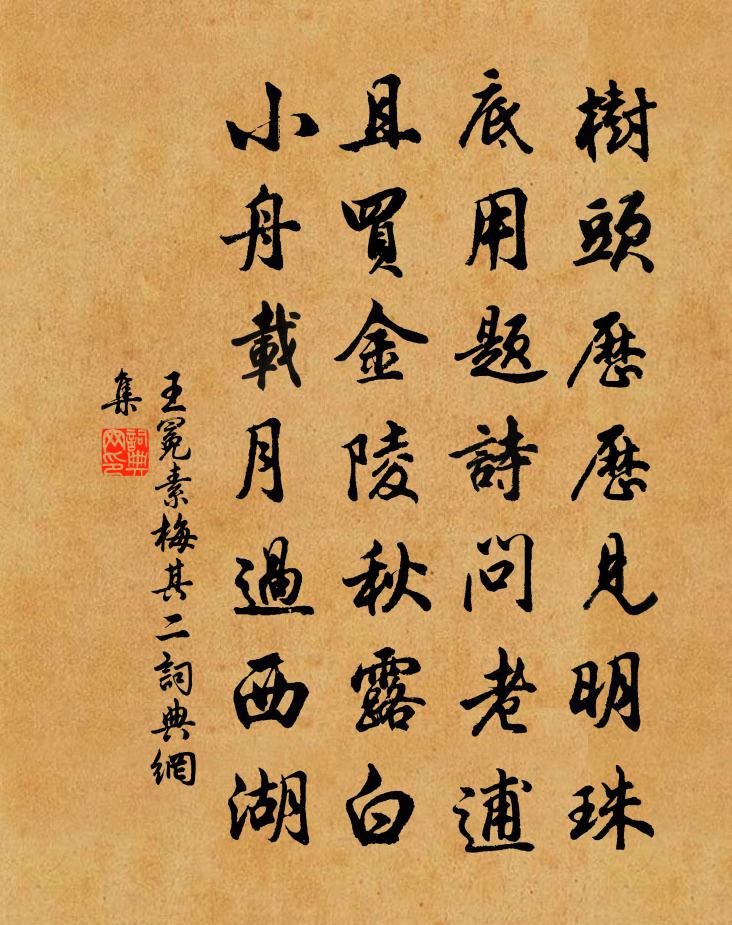 樹頭歷歷見明珠
底用題詩問老逋
且買金陵秋露白
小舟載月過西湖
王冕素梅其二詞典網
集
詞典網印